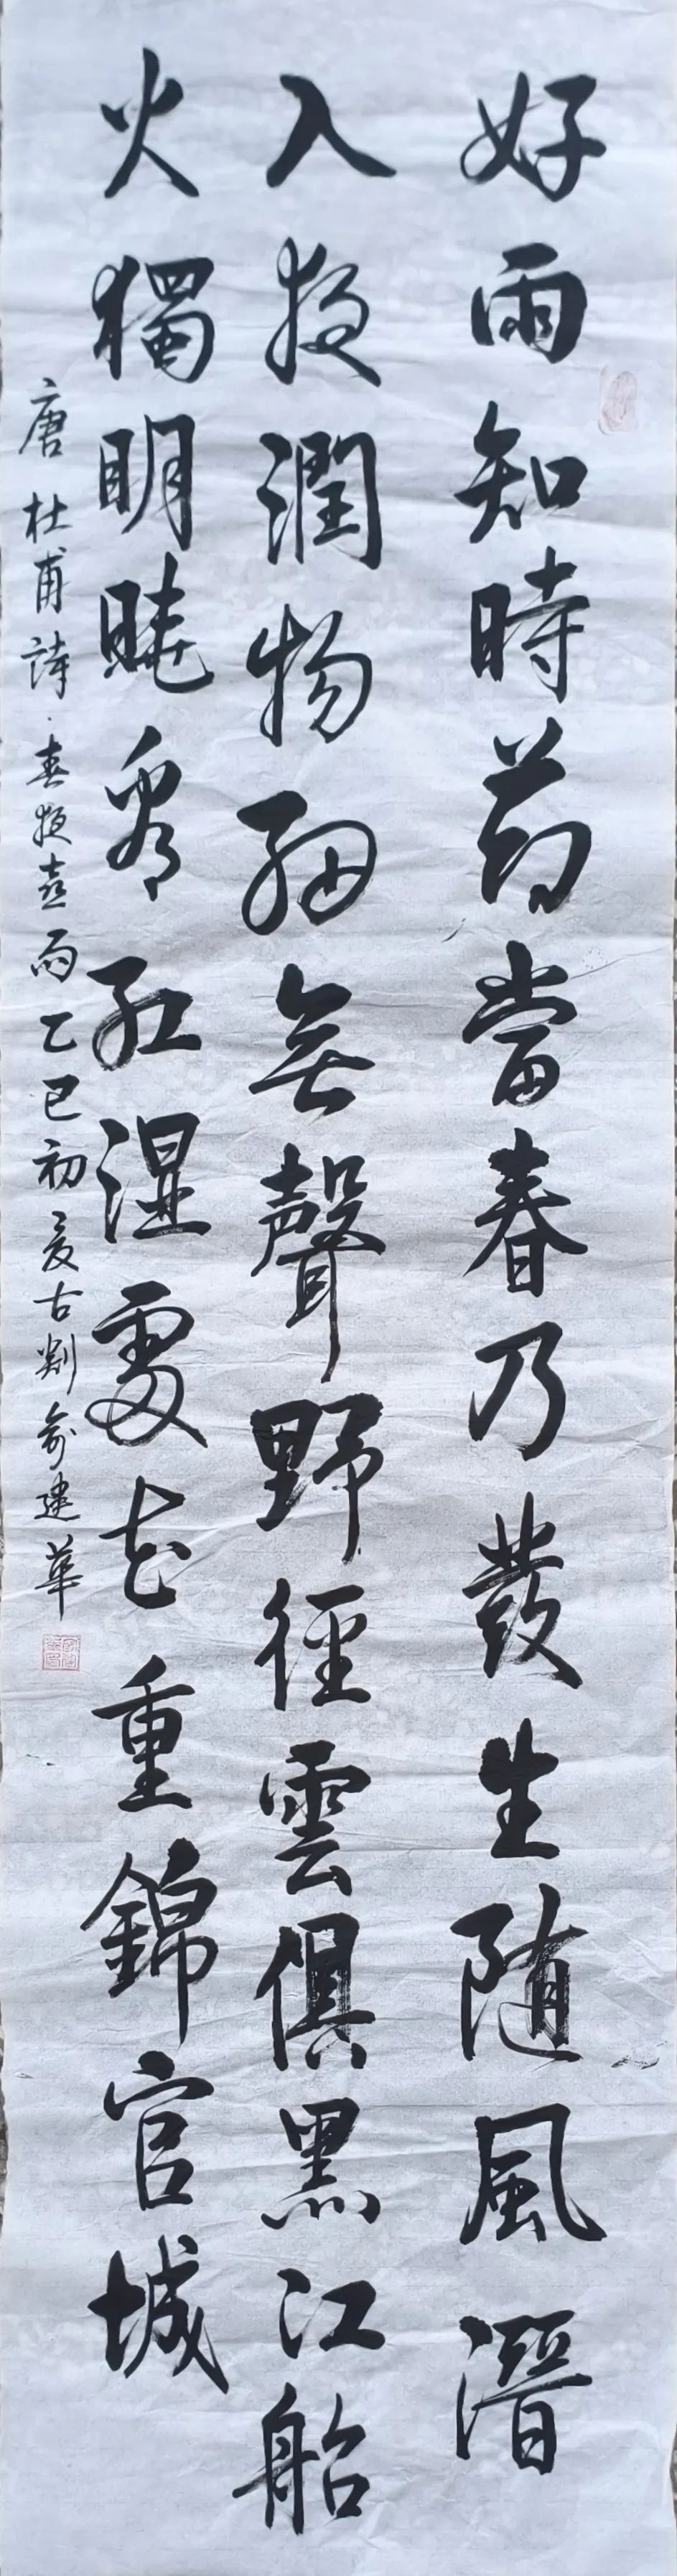 好雨知時節當春乃發生随風潛
入夜潤物細無聲野徑雲俱黑江船
火獨明曉看紅濕處花重錦官城
唐杜甫詩春夜喜雨乙巳初夏古剡俞建華